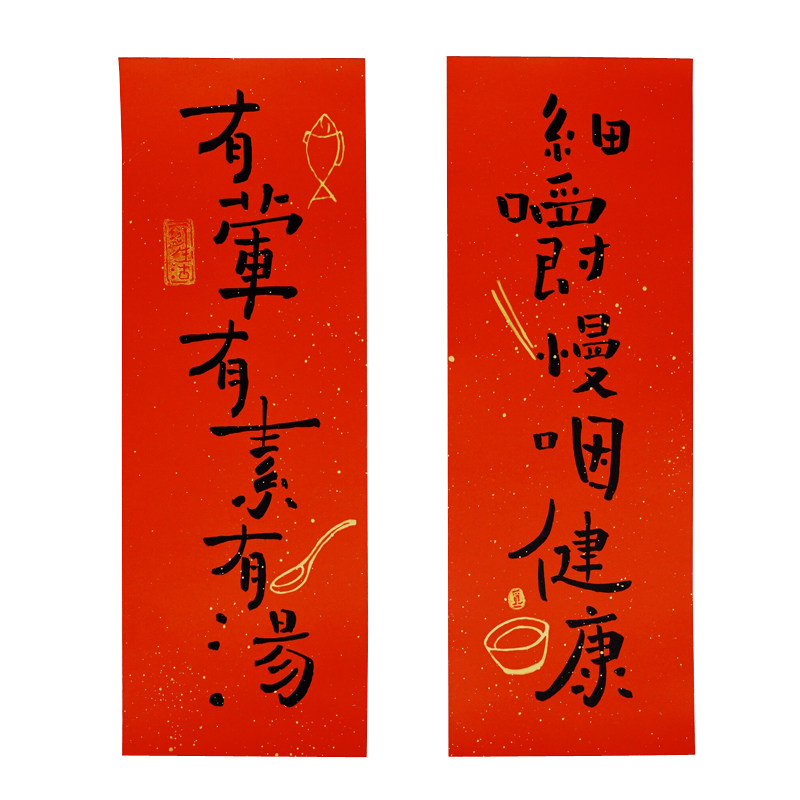 細嚼慢咽健康
有葷有素有湯